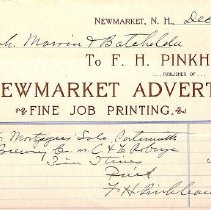 NEWMARKET, N. H., Dec
Morrin & Batchelder
To F. H. PINKH
PUBLISHER OF
NEWMARKET ADVERT
FINE JOB PRINTING.
Mortgagees Sale Portsmouth
Brewing Co vs
Times
Paid
F H Pinkham